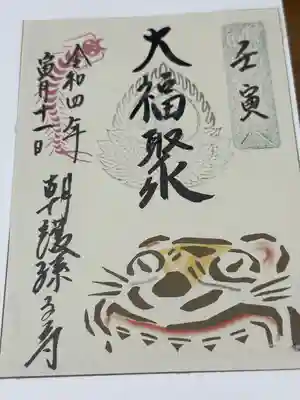 壬寅
大福聚
令和四年
寅月十一日
朝護孫子寺